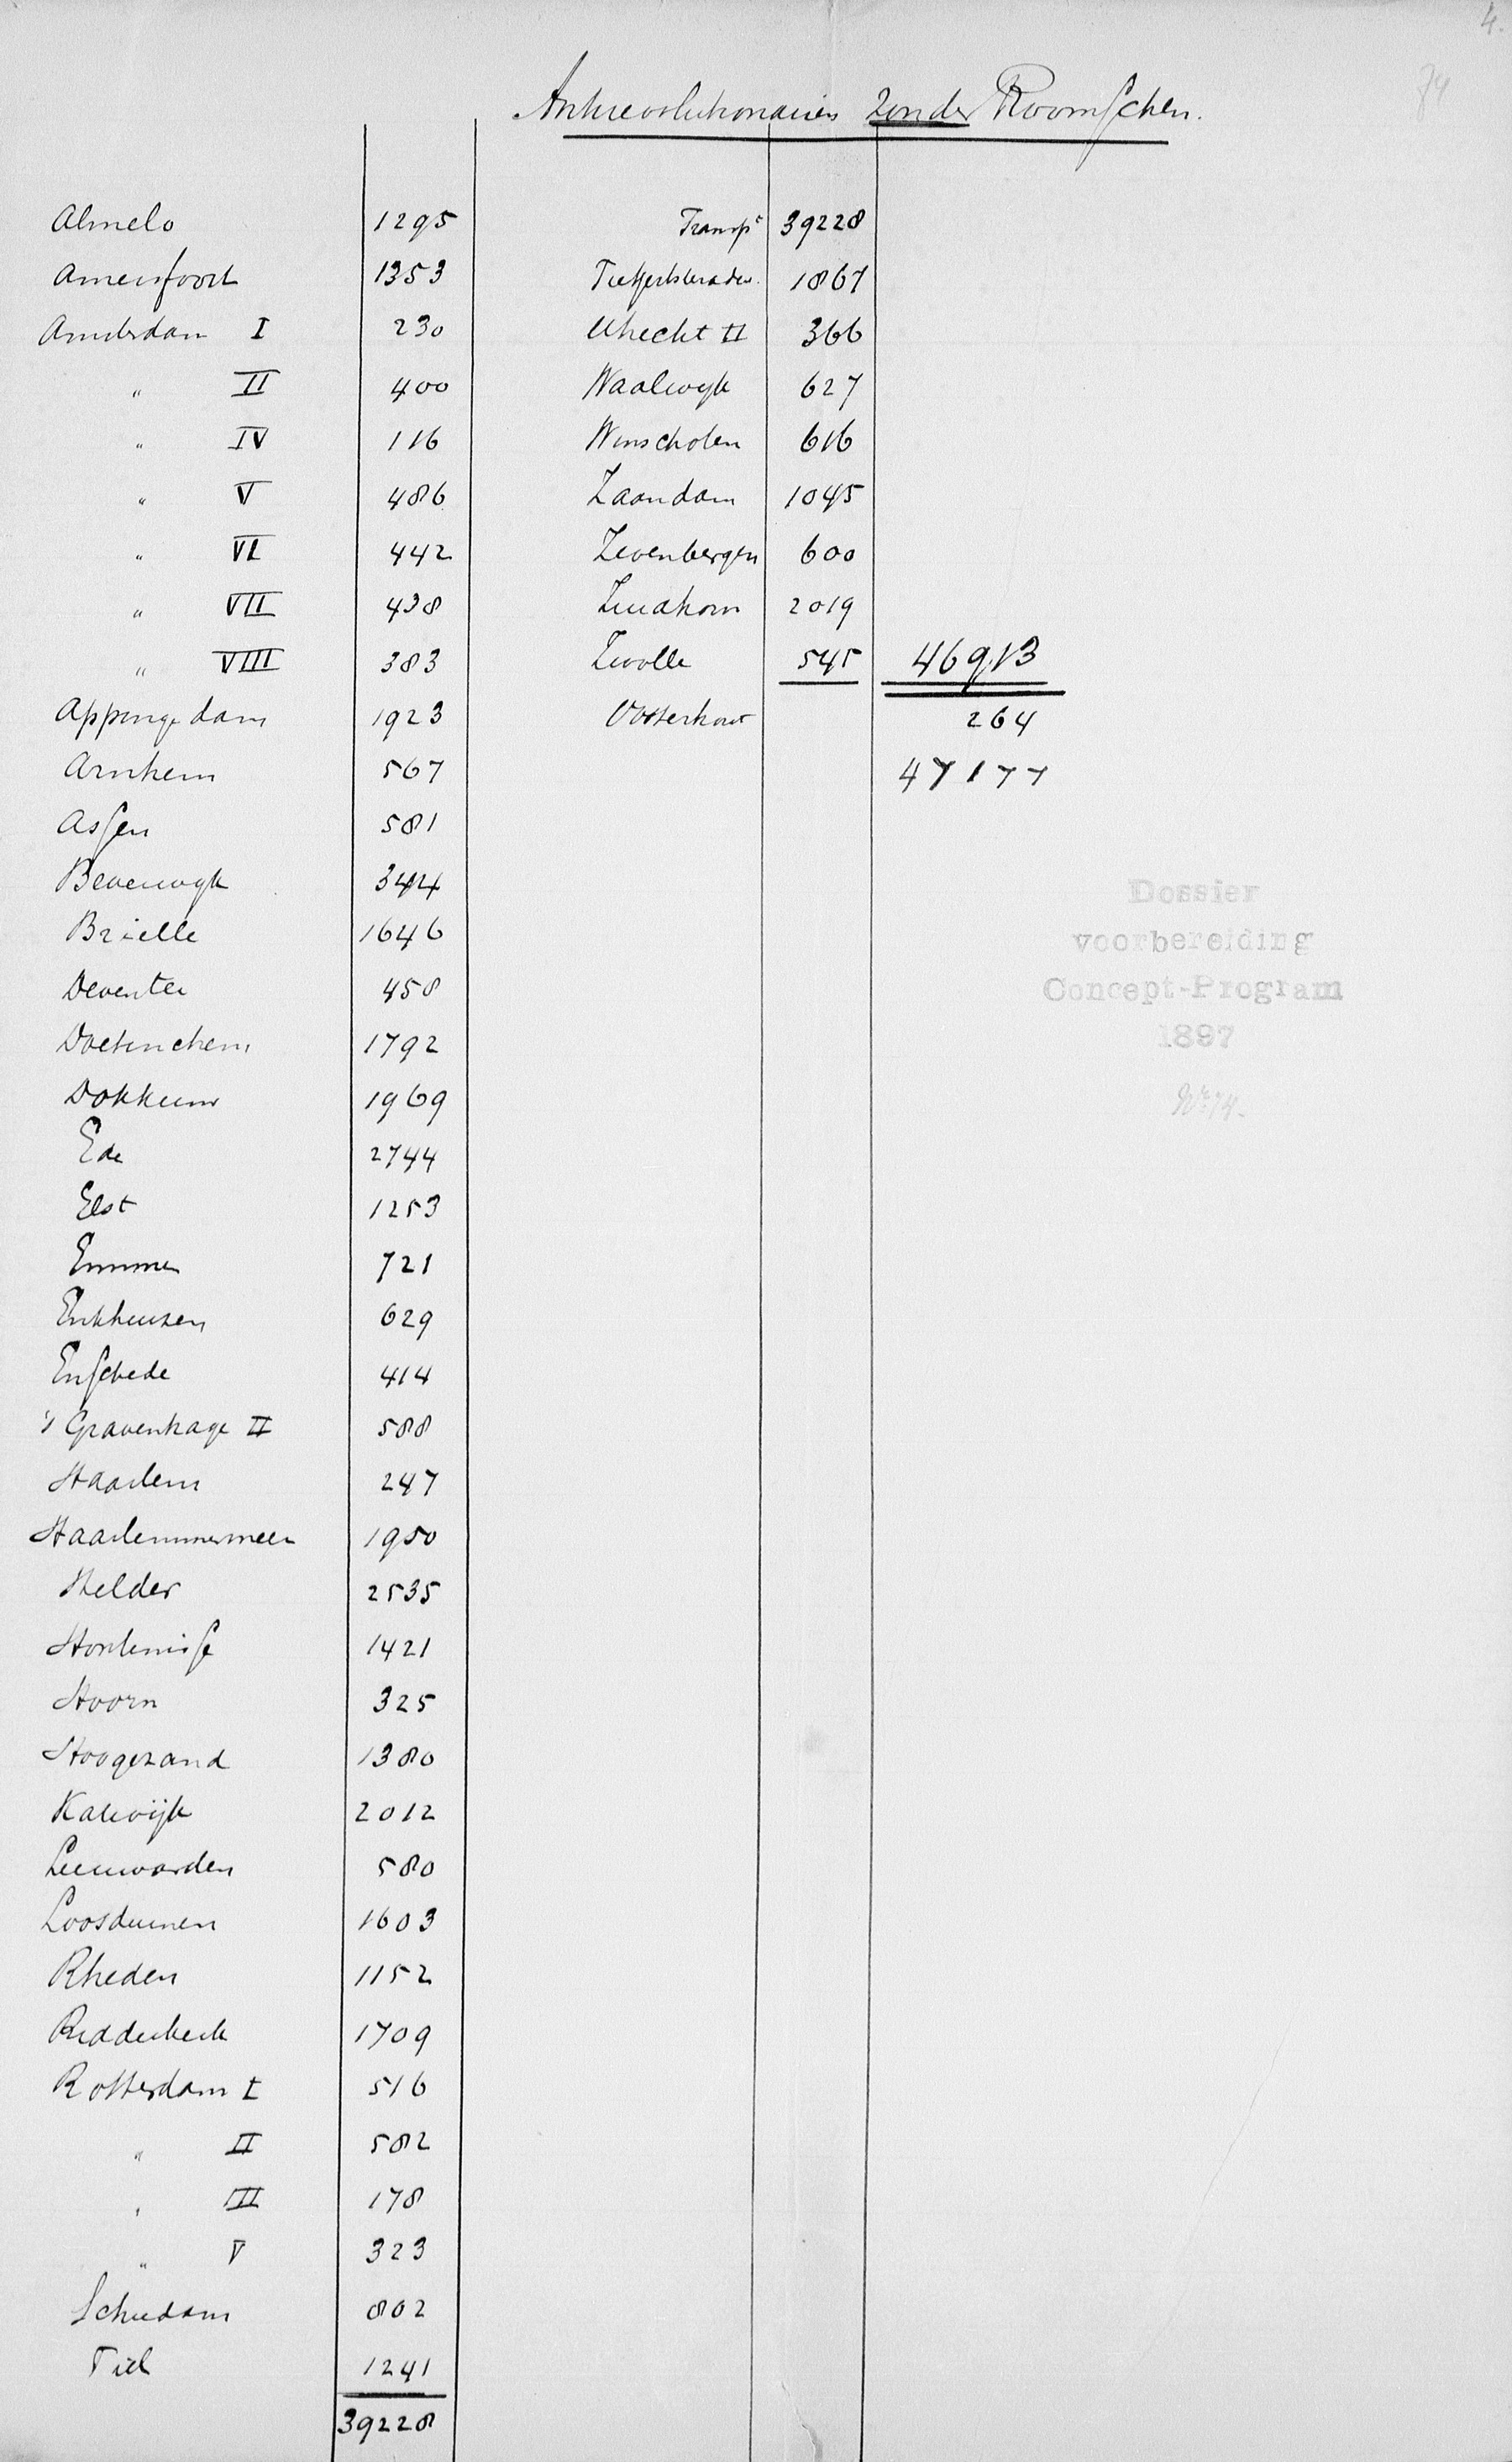 4.
74
Antirevolutionairen zonder Roomschen.
Almelo 1295
Amersfoort 1353
Amsterdam I 230
" II 400
" IV 116
" V 486
" VI 442
" VII 438
" VIII 383
Appingedam 1923
Arnhem 567
Assen 581
Beverwyk 344
Brielle 1646
Deventer 458
Doetinchem 1792
Dokkum 1969
Ede 2744
Elst 1253
Emmen 721
Enkhuizen 629
Enschede 414
's Gravenhage II 588
Haarlem 247
Haarlemmermeer 1950
Helder 2535
Hontenisse 1421
Hoorn 325
Hoogezand 1380
Katwijk 2012
Leeuwarden 580
Loosduinen 1603
Rheden 1152
Ridderkerk 1709
Rotterdam I 516
" II 582
" III 178
" V 323
Schiedam 802
Tiel 1241
39228
Transpt 39228
Tietjerksteradeel 1867
Utrecht II 366
Waalwyk 627
Winschoten 616
Zaandam 1045
Zevenbergen 600
Zuidhorn 2019
Zwolle 545 46913
Oosterhout 264
47177
Dossier
voorbereiding
Concept-Program
1897
No 74.